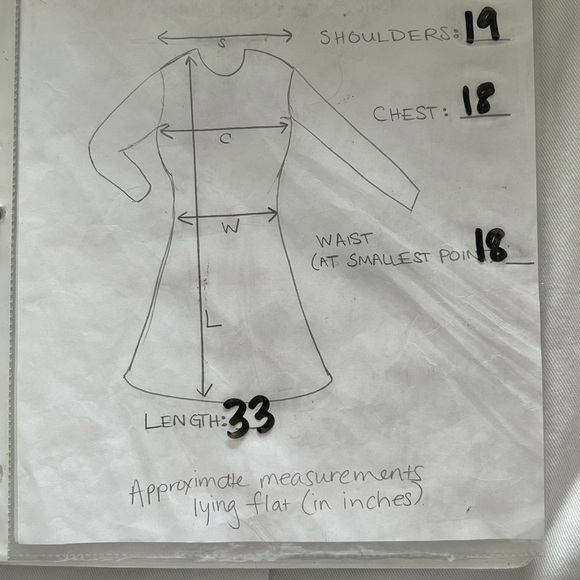 S
SHOULDERS: 19
CHEST: 18
C
W
WAIST
(AT SMALLEST POINT 18
L
LENGTH: 33
Approximate measurements
lying flat (in inches)